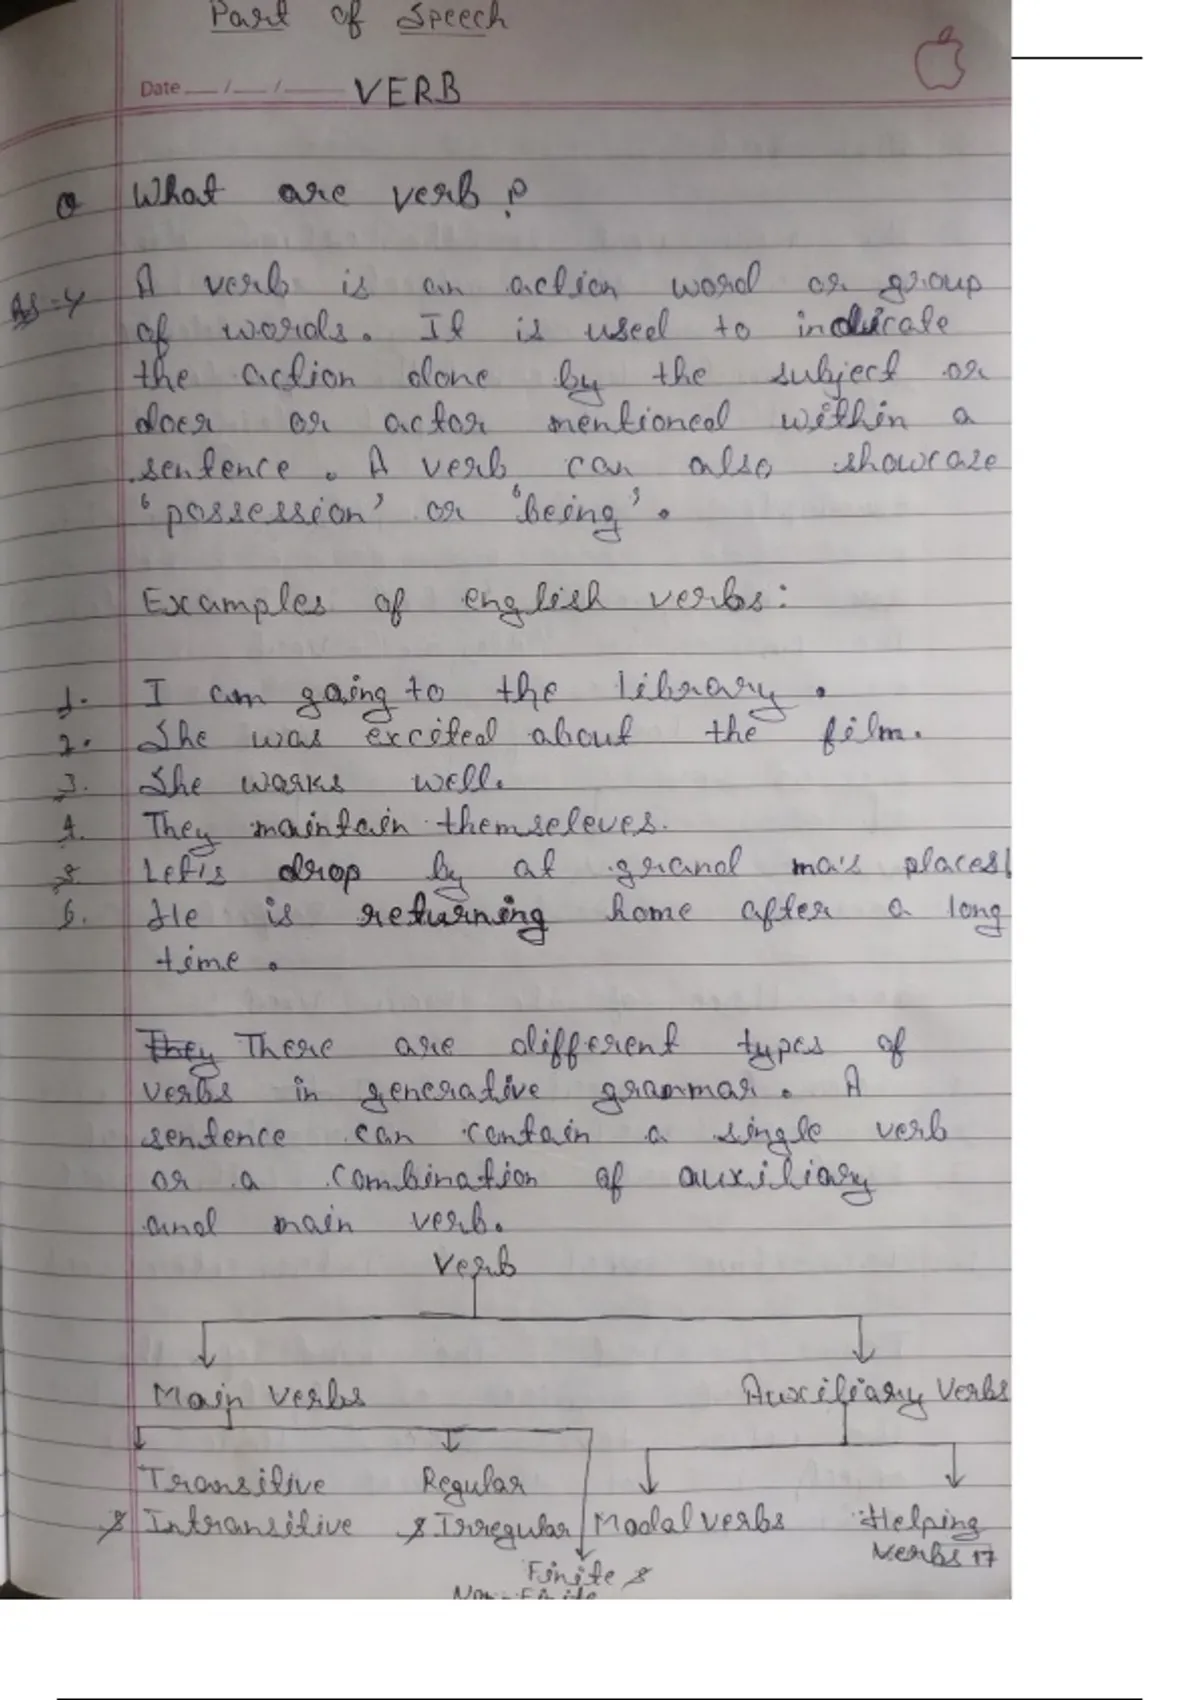 Part of Speech
Date __/__/____ VERB
Q What are verb ?
As → A verb is an action word or group
of words. It is used to indicate
the action done by the subject or
doer or actor mentioned within a
sentence. A verb can also showcase
'possession' or 'being'.
Examples of english verbs:
1. I am going to the library.
2. She was excited about the film.
3. She works well.
4. They maintain themseleves.
5. Let's drop by at grand ma's places!
6. He is returning home after a long
time.
They There are different types of
verbs in generative grammar. A
sentence can contain a single verb
or a combination of auxiliary
and main verb.
Verb
Main Verbs Auxiliary Verbs
Transitive Regular
& Intransitive & Irregular Modal verbs Helping
Verbs 17
Finite &
Non-Finite